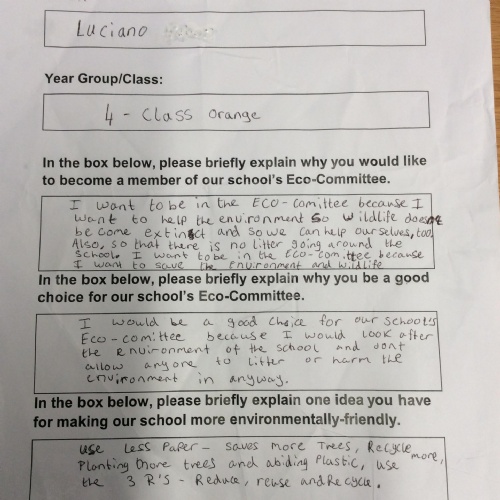 Luciano
Year Group/Class:
4 - Class Orange
In the box below, please briefly explain why you would like
to become a member of our school's Eco-Committee.
I want to be in the ECO-comittee because I
want to help the environment so wildlife doesnt
become extinct and so we can help ourselves, too.
Also, so that there is no litter going around the
school. I want to be in the Eco-comittee because
I want to save the Environment and wildlife
In the box below, please briefly explain why you be a good
choice for our school's Eco-Committee.
I would be a good choice for our school's
Eco-comittee because I would look after
the enuironment of the school and dont
allow anyone to litter or harm the
environment in anyway.
In the box below, please briefly explain one idea you have
for making our school more environmentally-friendly.
use Less Paper - saves more Trees, Recycle more,
Planting more trees and abiding Plastic, use
the 3 R's - Reduce, reuse and Recycle.